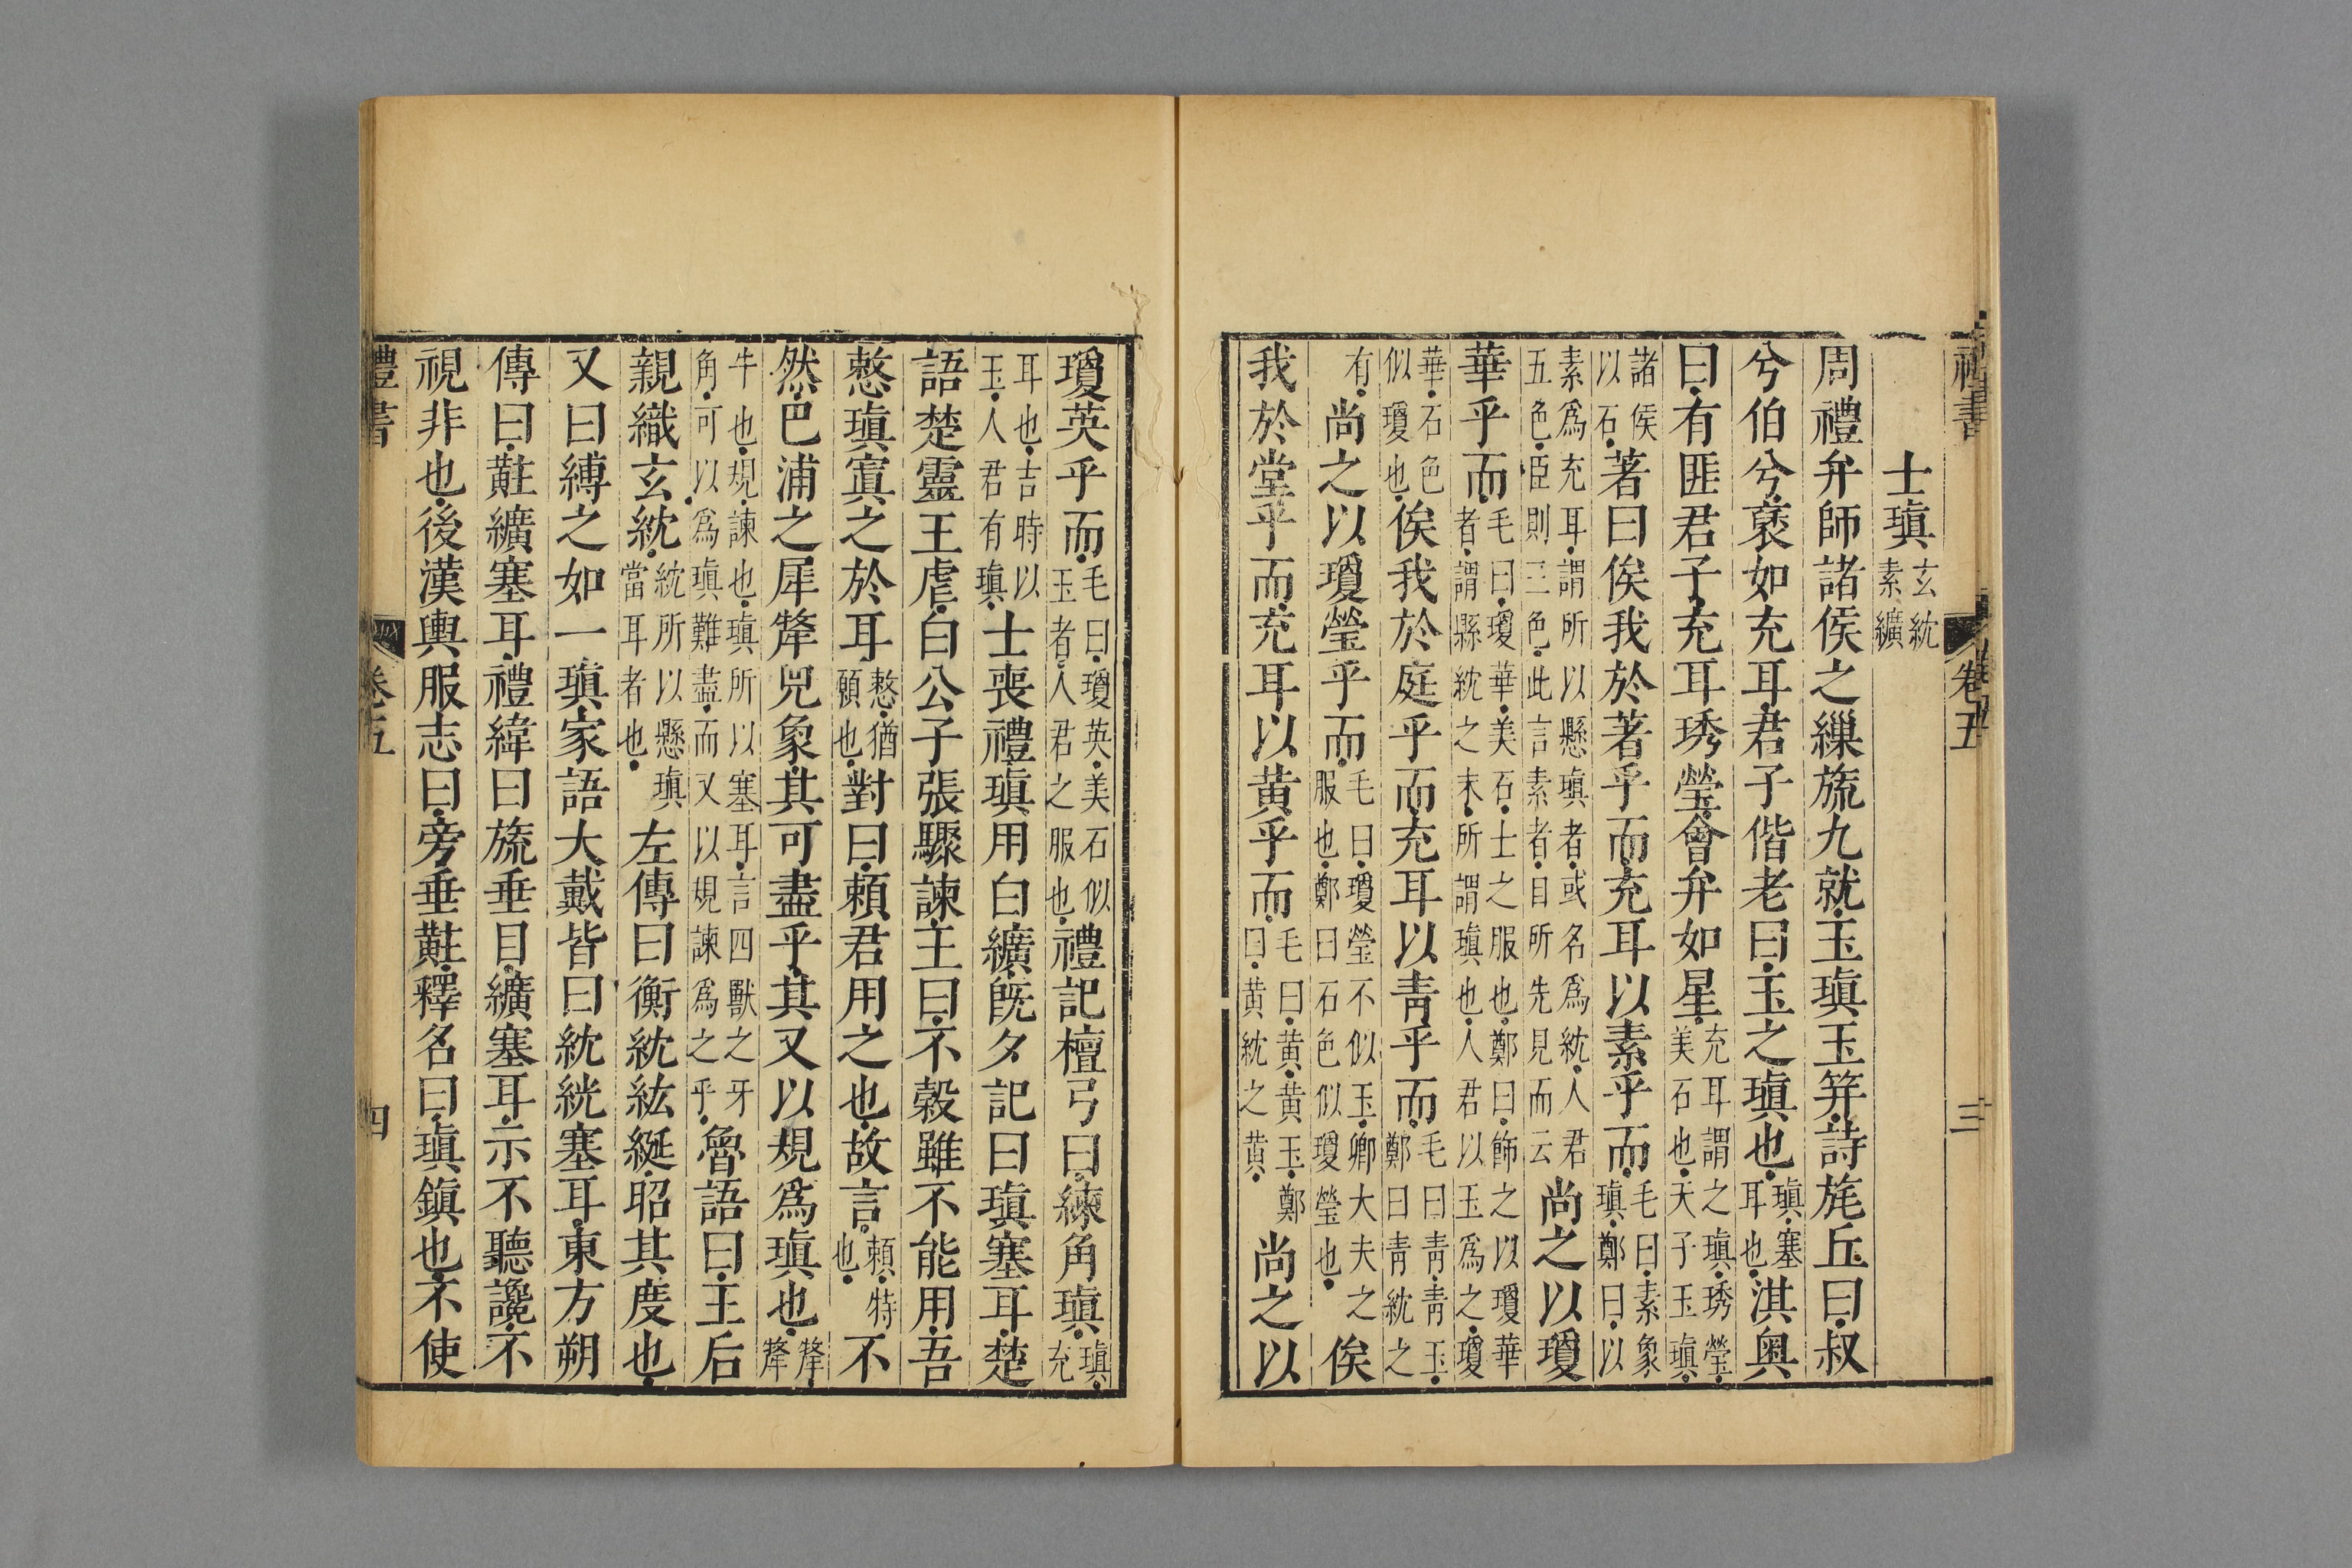 禮書 卷五 三
士瑱玄紞素纊
周禮弁師諸侯之繅旒九就玉瑱玉笄詩旄丘曰叔
兮伯兮褎如充耳君子偕老曰玉之瑱也瑱塞耳也淇奧
曰有匪君子充耳琇瑩會弁如星充耳謂之瑱琇瑩美石也天子玉瑱
諸侯以石著曰俟我於著乎而充耳以素乎而毛曰素象瑱鄭曰以
素爲充耳謂所以懸瑱者或名爲紞人君五色臣則三色此言素者目所先見而云尚之以瓊
華乎而毛曰瓊華美石士之服也鄭曰飾之以瓊華者謂縣紞之末所謂瑱也人君以玉爲之瓊
華石色似瓊也俟我於庭乎而充耳以靑乎而毛曰靑靑玉鄭曰靑紞之
有尚之以瓊瑩乎而毛曰瓊瑩不似玉卿大夫之服也鄭曰石色似瓊瑩也俟
我於堂乎而充耳以黃乎而毛曰黃黃玉鄭曰黃紞之黃尚之以
瓊英乎而毛曰瓊英美石似玉者人君之服也禮記檀弓曰練角瑱瑱充
耳也吉時以玉人君有瑱士喪禮瑱用白纊旣夕記曰瑱塞耳楚
語楚靈王虐白公子張驟諫王曰不穀雖不能用吾
憗瑱寘之於耳憗猶願也對曰賴君用之也故言賴特也不
然巴浦之犀犛兕象其可盡乎其又以規爲瑱也犛犛
牛也規諫也瑱所以塞耳言四獸之牙角可以爲瑱難盡而又以規諫爲之乎魯語曰王后
親織玄紞紞所以懸瑱當耳者也左傳曰衡紞紘綖昭其度也
又曰縛之如一瑱家語大戴皆曰紞絖塞耳東方朔
傳曰黈纊塞耳禮緯曰旒垂目纊塞耳示不聽讒不
視非也後漢輿服志曰旁垂黈釋名曰瑱鎮也不使
禮書 卷五 四